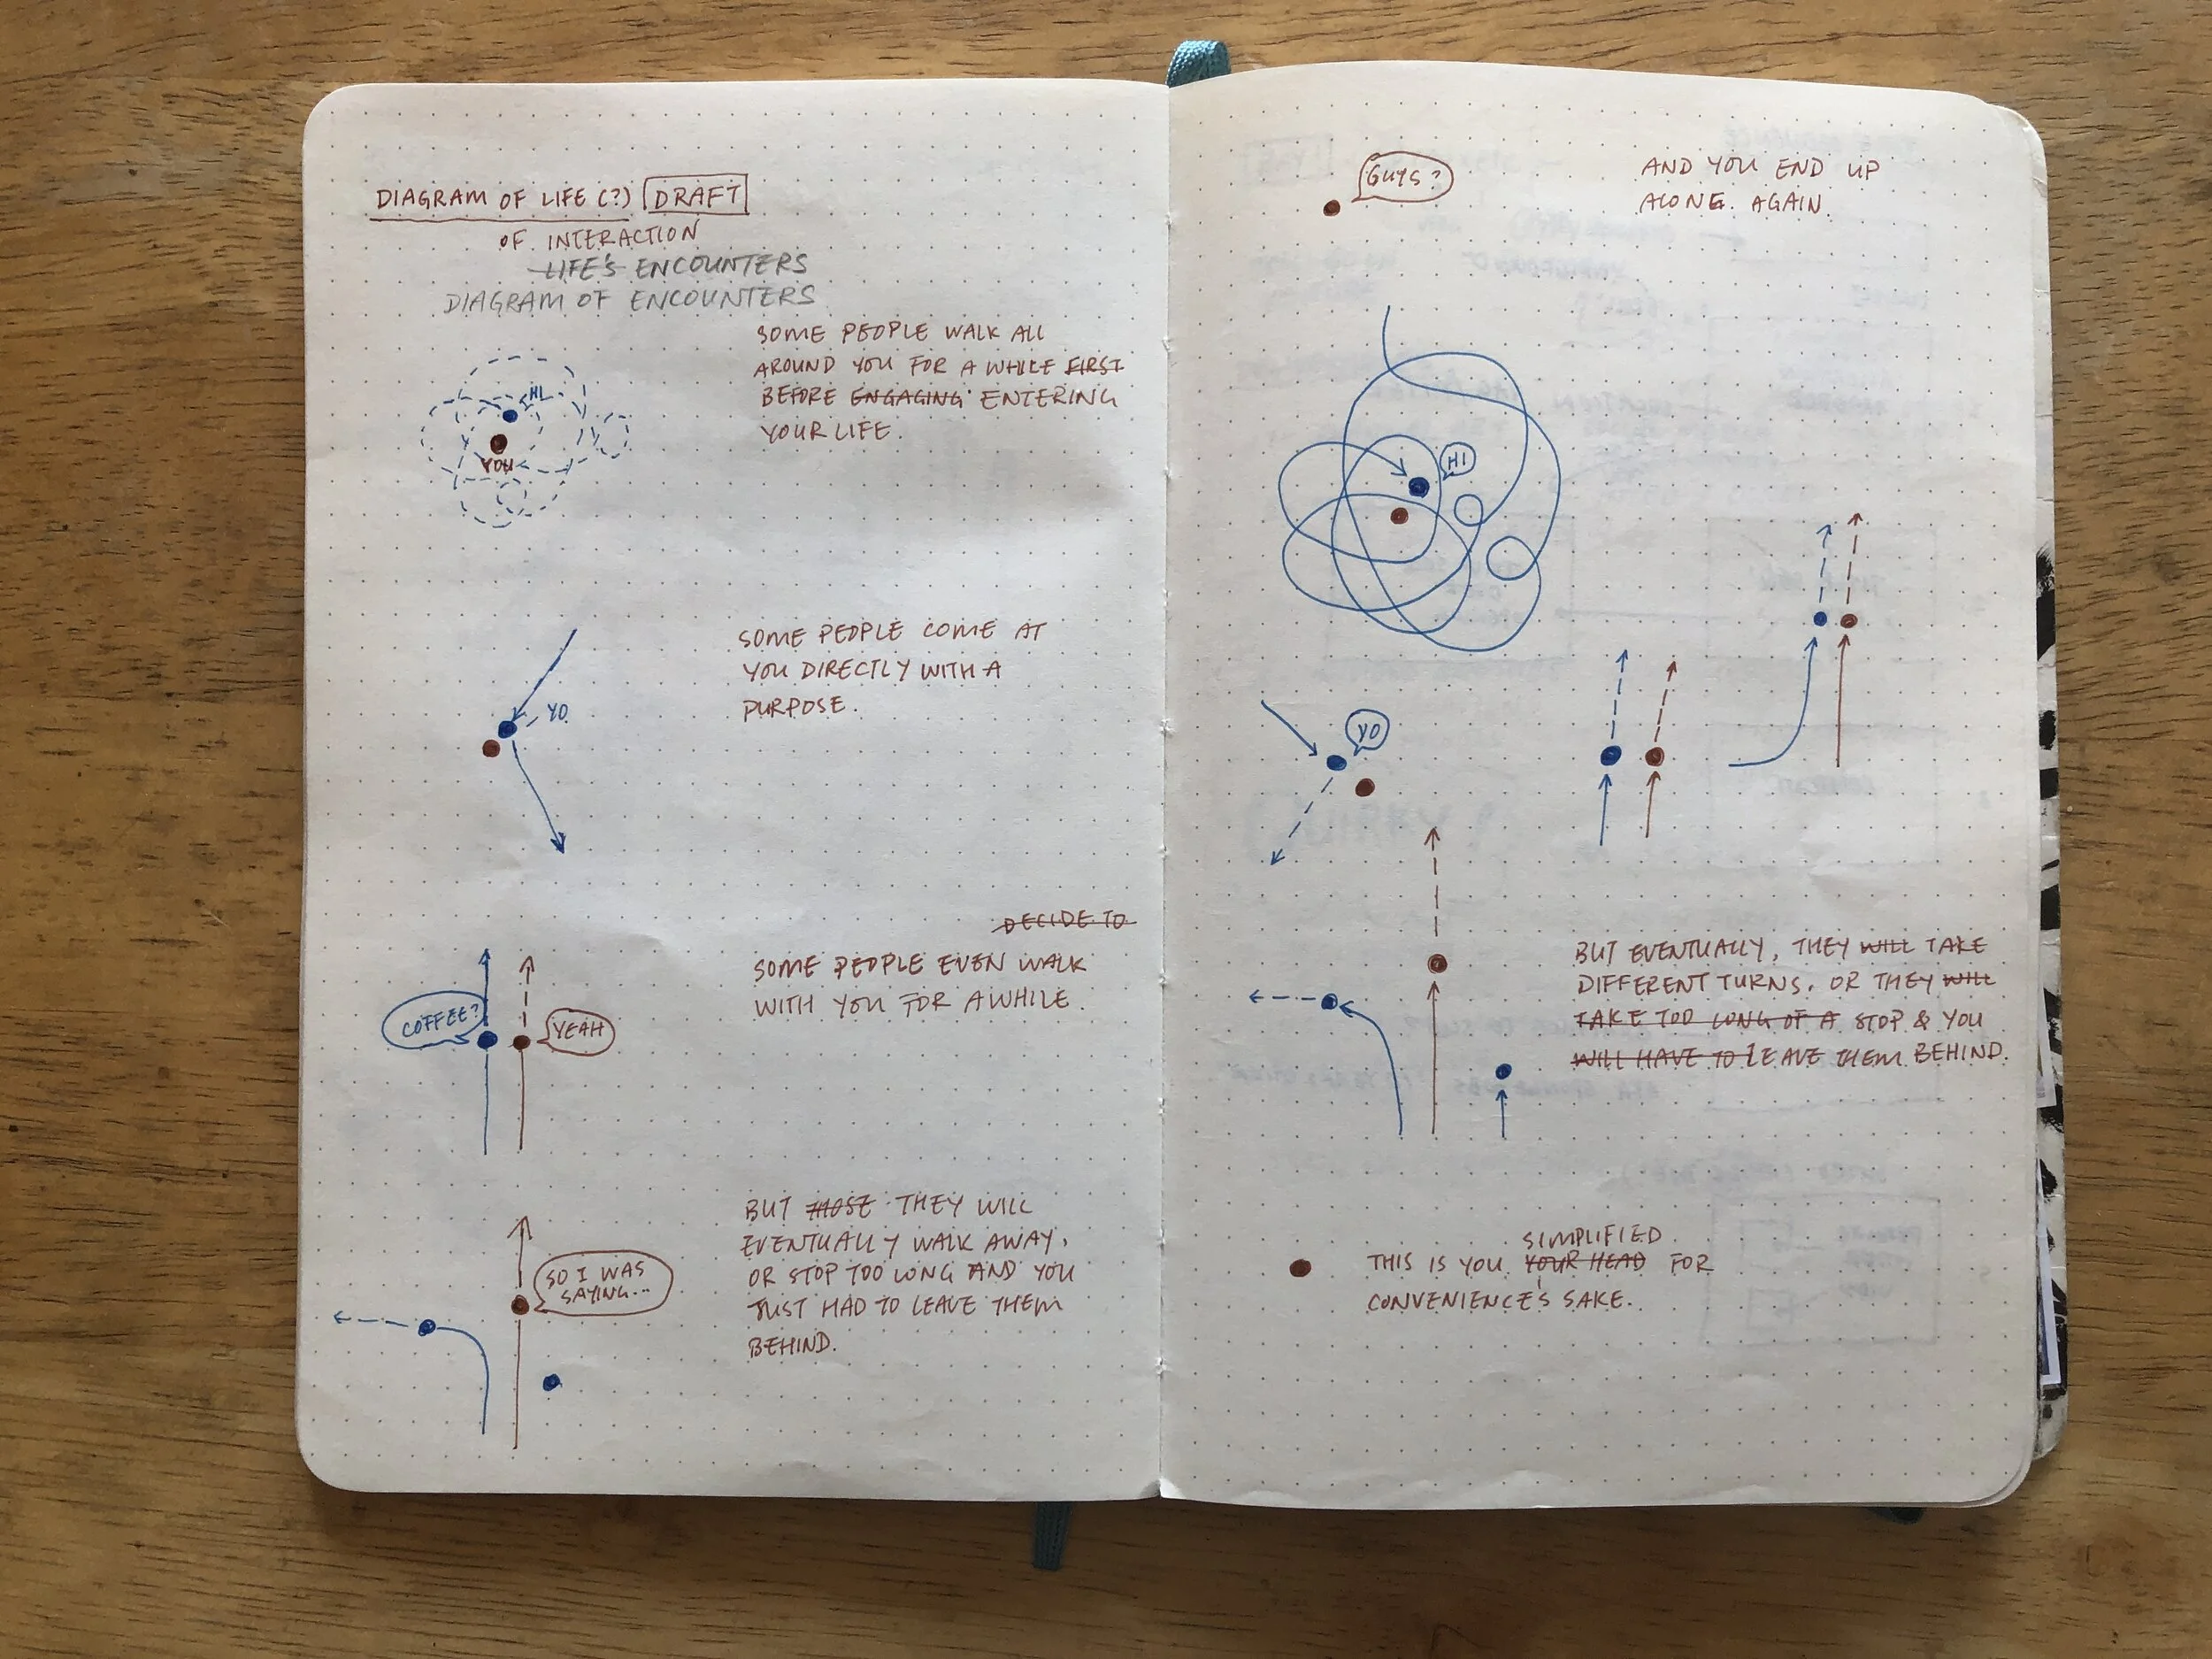 DIAGRAM OF LIFE (?) DRAFT
OF INTERACTION
LIFE'S ENCOUNTERS
DIAGRAM OF ENCOUNTERS
SOME PEOPLE WALK ALL
AROUND YOU FOR A WHILE FIRST
BEFORE ENGAGING ENTERING
YOUR LIFE.
HI
YOU
SOME PEOPLE COME AT
YOU DIRECTLY WITH A
PURPOSE.
YO
DECIDE TO
SOME PEOPLE EVEN WALK
WITH YOU FOR AWHILE.
COFFEE?
YEAH
BUT THOSE THEY WILL
EVENTUALLY WALK AWAY,
OR STOP TOO LONG AND YOU
JUST HAD TO LEAVE THEM
BEHIND.
SO I WAS
SAYING...
GUYS?
AND YOU END UP
ALONE AGAIN.
HI
YO
BUT EVENTUALLY, THEY WILL TAKE
DIFFERENT TURNS. OR THEY WILL
TAKE TOO LONG OF A STOP & YOU
WILL HAVE TO LEAVE THEM BEHIND.
SIMPLIFIED
THIS IS YOU YOUR HEAD FOR
CONVENIENCE'S SAKE.